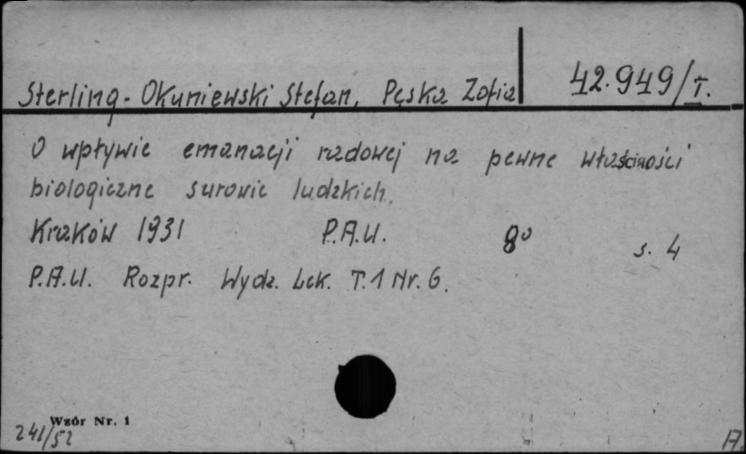 Sterling-Okuniewski Stefan, Pęska Zofia 42.949/I.
O wpływie emanacji radowej na pewne własności
biologiczne surowic ludzkich.
Kraków 1931 P.A.U. 8° s. 4
P.A.U. Rozpr. Wydz. Lek. T.1 Nr. 6.
Wzór Nr. 1
241/52 A.